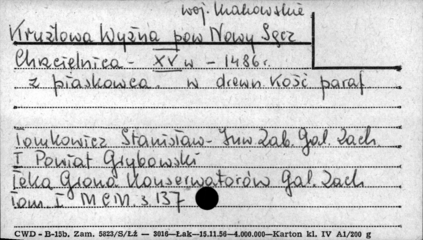 woj. krakowskie
Krużlowa Wyżna pow Nowy Sącz
Chrzcielnica - XV w - 1486 r.
z piaskowca. w drewn kość paraf
Tomkowicz Stanisław - Inw Zab. Gal. Zach
I Powiat Grybowski
Teka Grona Konserwatorów Gal. Zach
tom I MCM. s 137
CWD - B-15b. Zam. 5823/S/Łż — 3016—Łak—15.11.56—4.000.000—Karton kl. IV A1/200 g